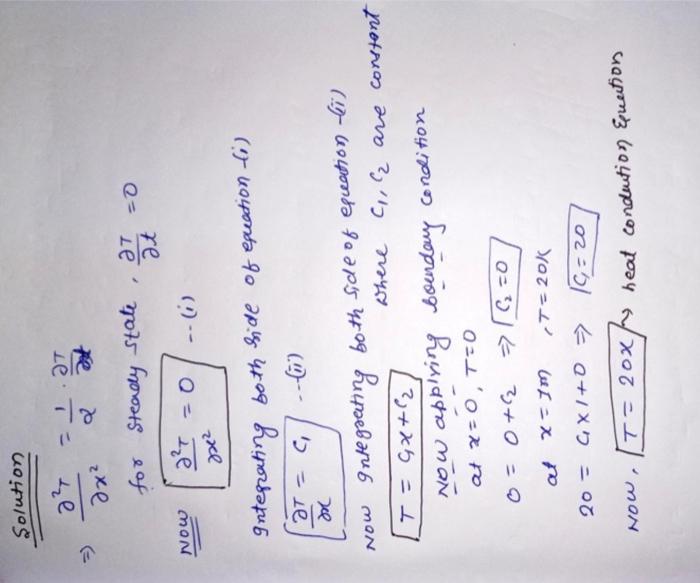 Solution
⇒ ∂²T/∂x² = 1/α · ∂T/∂t
for steady state, ∂T/∂t = 0
NOW ∂²T/∂x² = 0 --(i)
Integrating both side of equation -(i)
∂T/∂x = C₁ --(ii)
NOW Integrating both side of equation -(ii)
T = C₁x + C₂ where C₁, C₂ are constant
NOW applying boundary condition
at x = 0, T = 0
0 = 0 + C₂ ⇒ C₂ = 0
at x = 1m, T = 20K
20 = C₁ × 1 + 0 ⇒ C₁ = 20
NOW, T = 20x → heat conduction Equation